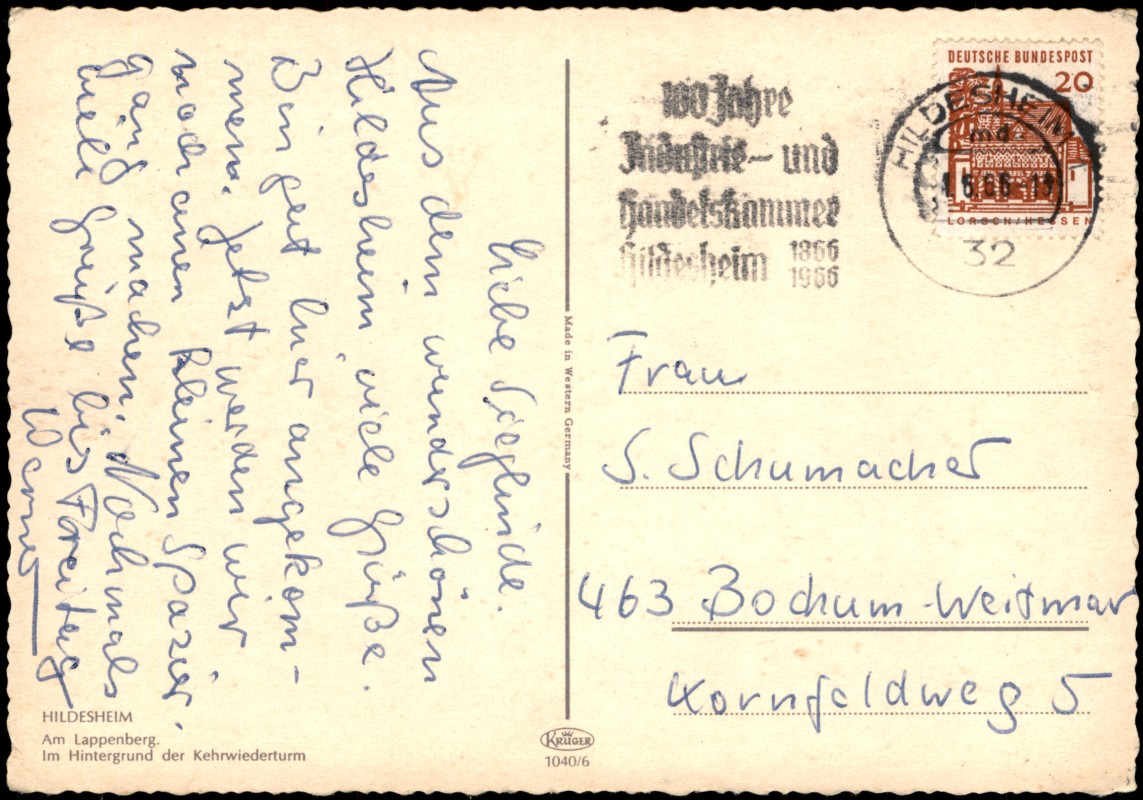 Liebe Sieglinde.
Aus dem wunderschönen
Hildesheim viele Grüße.
Bin gut hier angekom-
men. Jetzt werden wir
noch einen kleinen Spazier-
gang machen. Nochmals
viele Grüße bis Freitag
Werner
HILDESHEIM
Am Lappenberg.
Im Hintergrund der Kehrwiederturm
Made in Western Germany
KRÜGER
1040/6
100 Jahre
Industrie- und
Handelskammer
Hildesheim 1866
1966
DEUTSCHE BUNDESPOST
20
LORSCH/HESSEN
HILDESHEIM
md
32
Frau
S. Schumacher
463 Bochum-Weitmar
Kornfeldweg 5